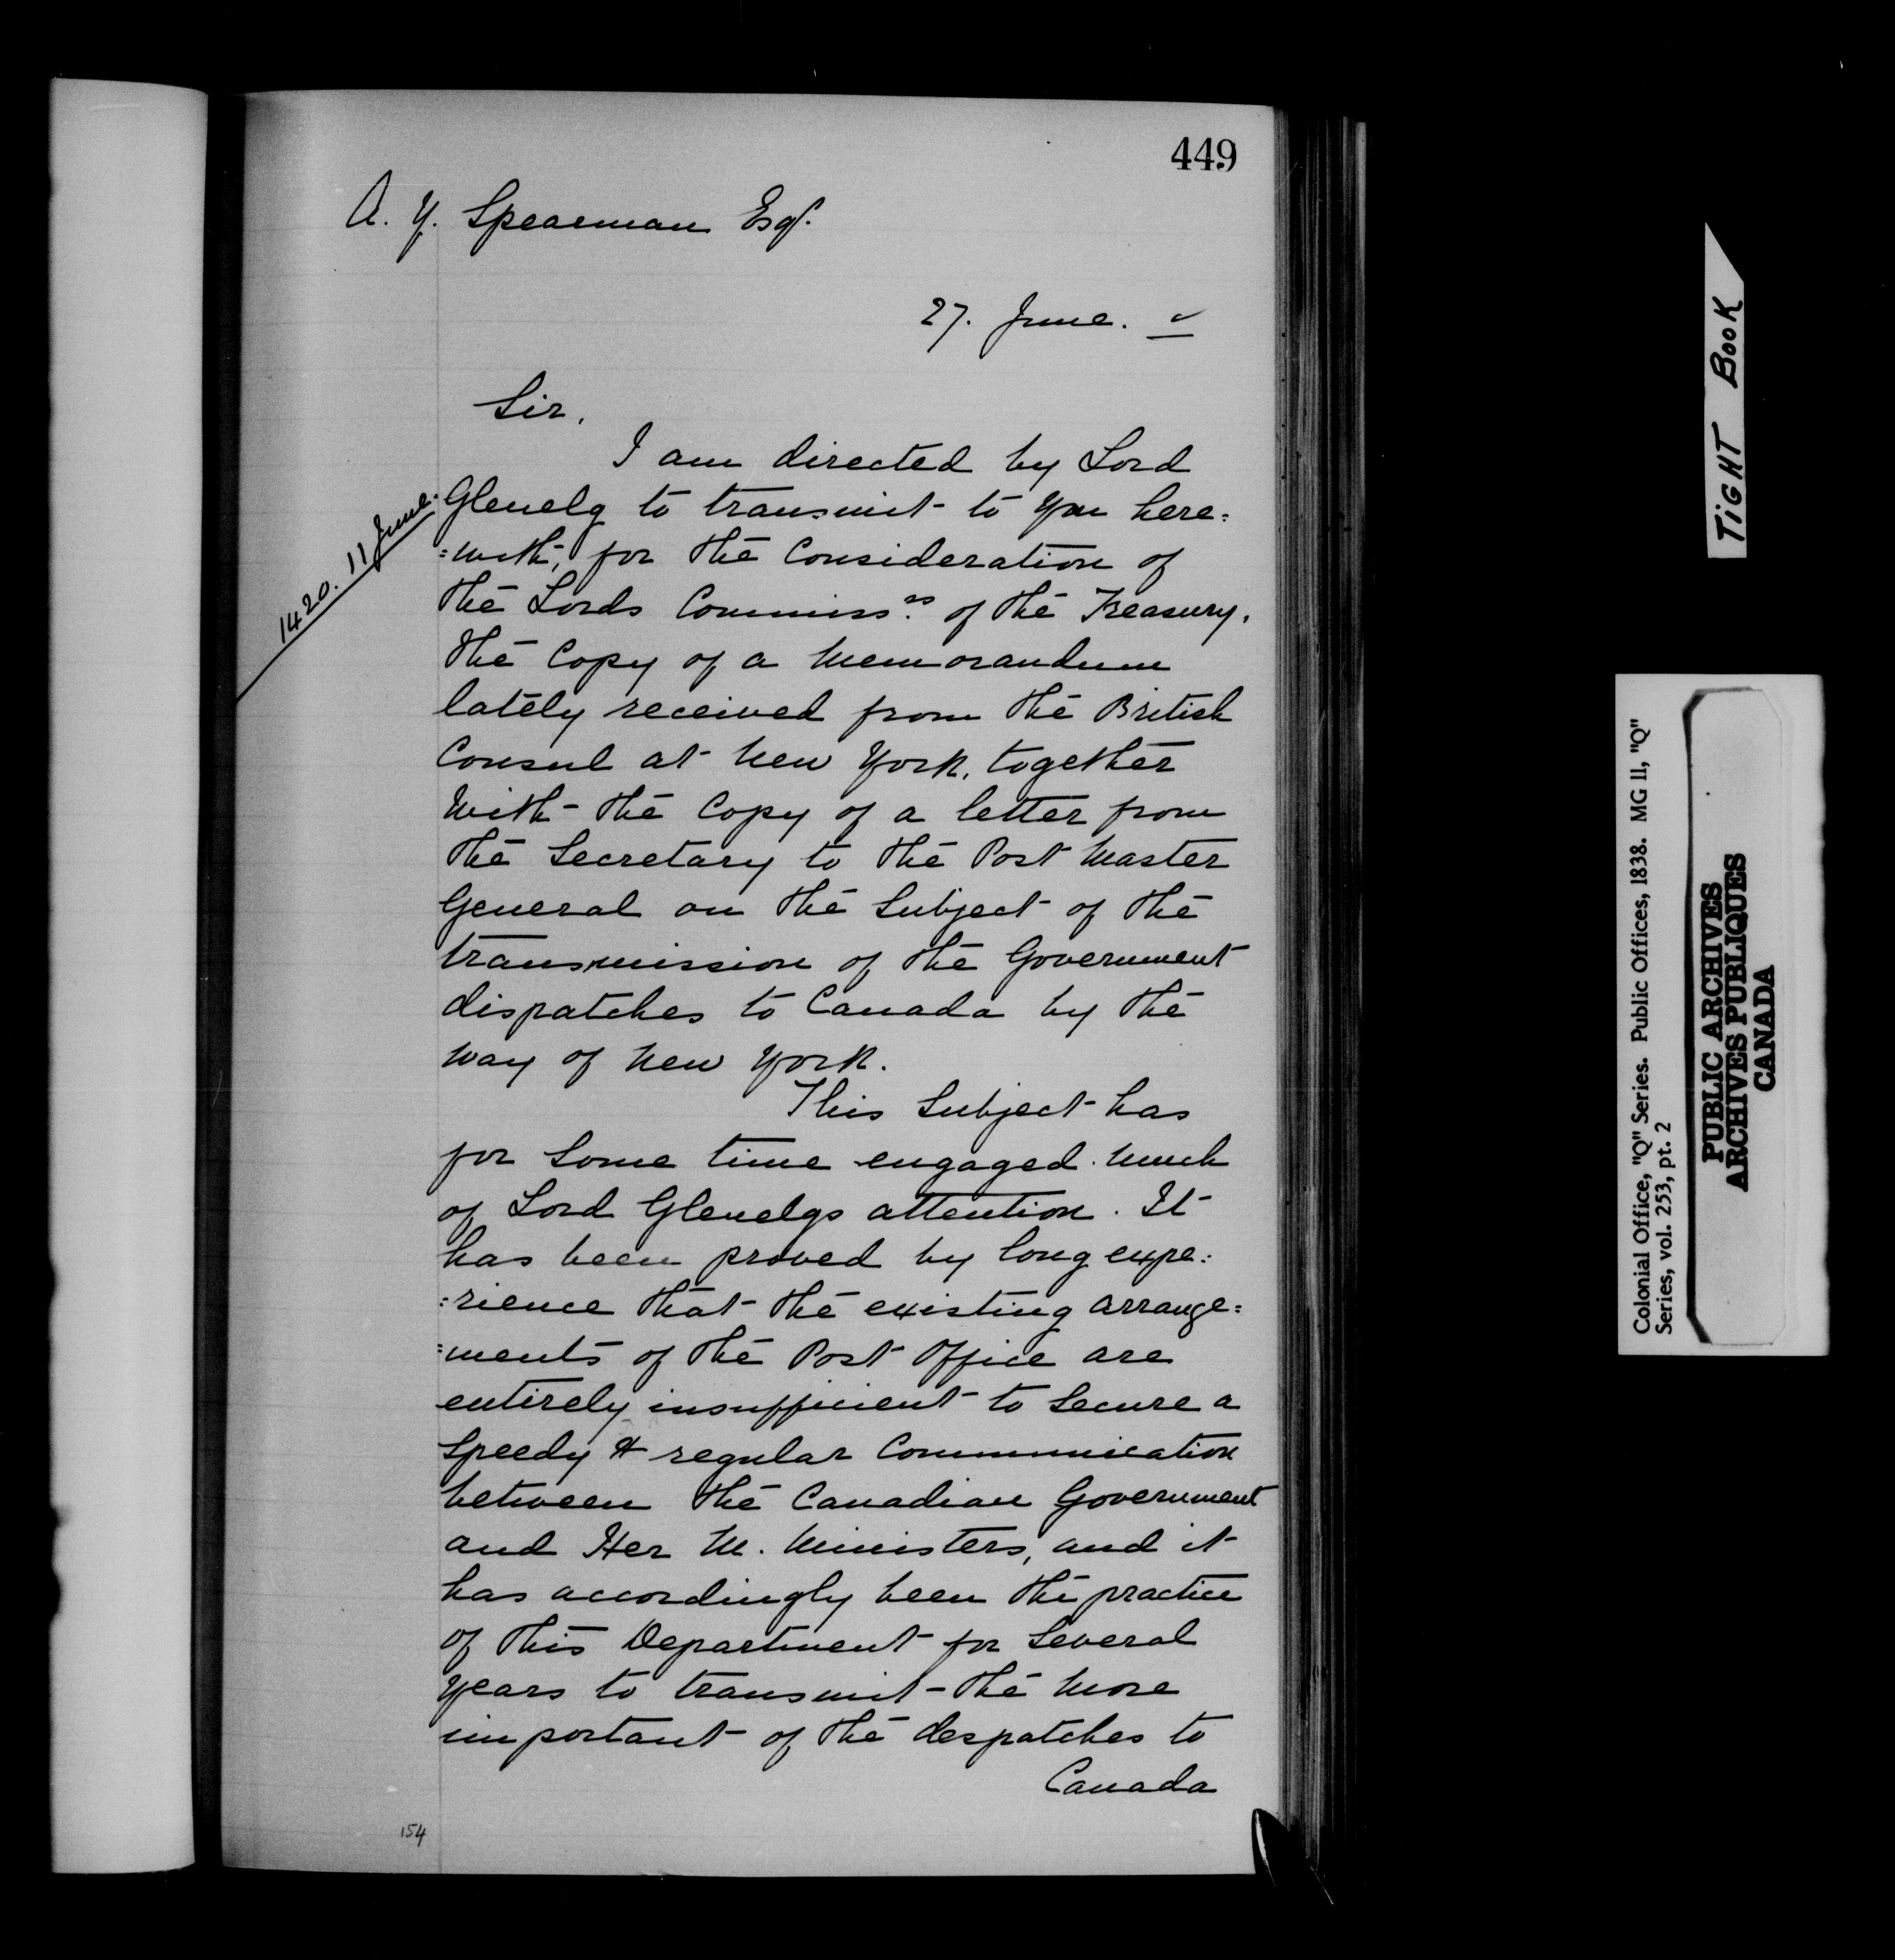 449
A. Y. Spearman Esqr.
27. June.
Sir,
I am directed by Lord
Glenelg to transmit to you here=
=with, for the Consideration of
the Lords Commissrs. of the Treasury,
the Copy of a Memorandum
lately received from the British
Consul at New York, together
with the Copy of a letter from
the Secretary to the Post Master
General on the Subject of the
transmission of the Government
dispatches to Canada by the
way of New York.
This Subject has
for Some time engaged much
of Lord Glenelgs attention. It
has been proved by long expe:
:rience that the existing arrange=
=ments of the Post Office are
entirely insufficient to Secure a
Speedy & regular Communication
between the Canadian Government
and Her M. Ministers, and it
has accordingly been the practice
of this Department for Several
years to transmit the More
important of the despatches to
Canada
1420. 11 June.
154
TIGHT BOOK
Colonial Office, "Q" Series. Public Offices, 1838. MG 11, "Q"
Series, vol. 253, pt. 2
PUBLIC ARCHIVES
ARCHIVES PUBLIQUES
CANADA